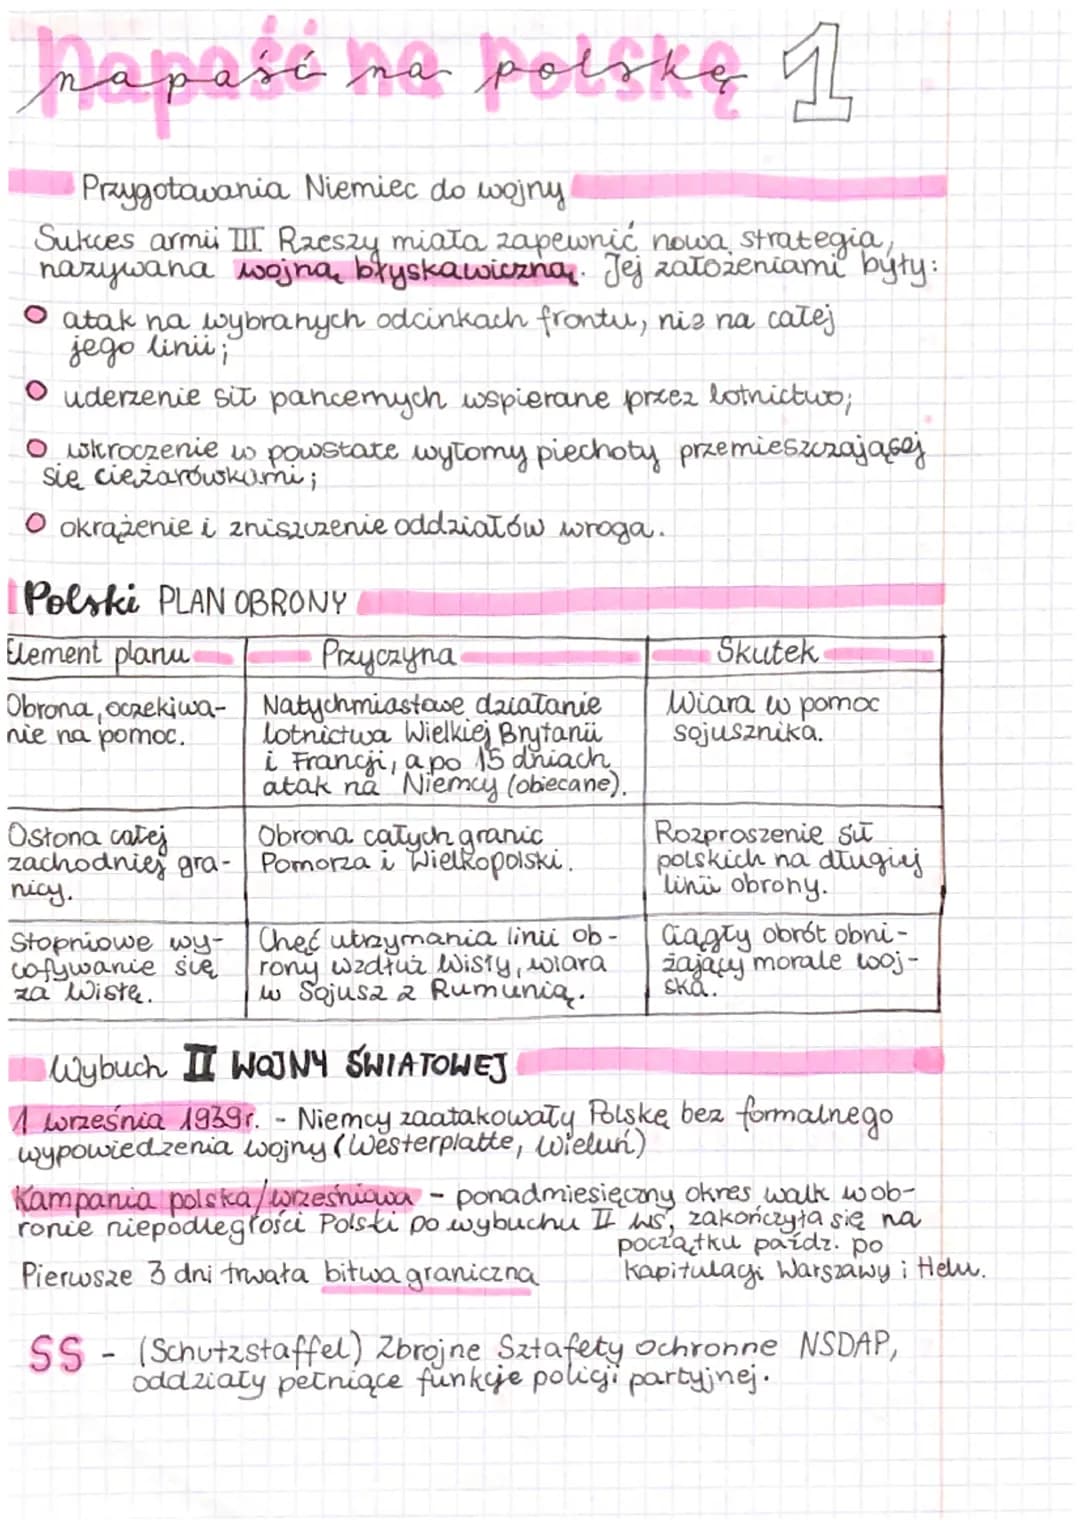 napaść na polskę 1
Przygotowania Niemiec do wojny
Sukces armii III Rzeszy miała zapewnić nowa strategia,
nazywana wojną błyskawiczną. Jej założeniami były:
atak na wybranych odcinkach frontu, niż na całej
jego linii;
uderzenie sił pancernych wspierane przez lotnictwo;
wkroczenie w powstałe wyłomy piechoty przemieszczającej
się ciężarówkami;
okrążenie i zniszczenie oddziałów wroga.
Polski PLAN OBRONY
Element planu Przyczyna Skutek
Obrona, oczekiwa-
nie na pomoc.
Natychmiastowe działanie
lotnictwa Wielkiej Brytanii
i Francji, a po 15 dniach
atak na Niemcy (obiecane).
Wiara w pomoc
sojusznika.
Osłona całej
zachodniej gra-
nicy.
Obrona całych granic
Pomorza i Wielkopolski.
Rozproszenie sił
polskich na długiej
linii obrony.
Stopniowe wy-
cofywanie się
za Wisłę.
Chęć utrzymania linii ob-
rony wzdłuż Wisły, wiara
w Sojusz z Rumunią.
Ciągły obrót obni-
żający morale woj-
ska.
Wybuch II WOJNY ŚWIATOWEJ
1 września 1939r. - Niemcy zaatakowały Polskę bez formalnego
wypowiedzenia wojny (Westerplatte, Wieluń)
Kampania polska/wrześniowa - ponadmiesięczny okres walk w ob-
ronie niepodległości Polski po wybuchu II WŚ, zakończyła się na
początku paźdz. po
kapitulacji Warszawy i Helu.
Pierwsze 3 dni trwała bitwa graniczna
SS - (Schutzstaffel) Zbrojne Sztafety Ochronne NSDAP,
oddziały pełniące funkcje policji partyjnej.